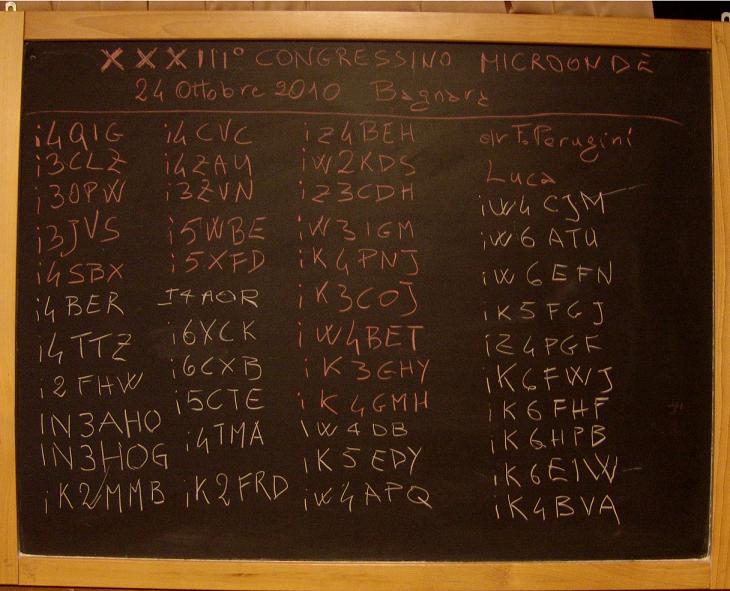 XXXIII° CONGRESSINO MICROONDE
24 Ottobre 2010 Bagnara
i4QIG i4CVC iZ4BEH dr F. Perugini
i3CLZ i4ZAU iW2KDS Luca
i3OPW i3ZVN iZ3CDH iW4CJM
i3JVS i5WBE iW3IGM iW6ATU
i4SBX i5XFD iK4PNJ iW6EFN
i4BER I4AOR iK3COJ iK5FGJ
i4TTZ i6XCK iW4BET iZ4PGF
i2FHW i6CXB iK3GHY iK6FWJ
IN3AHO i5CTE iK4GMH iK6FHF
IN3HOG i4TMA IW4DB iK6HPB
iK2MMB iK2FRD iK5EDY iK6EIW
iW4APQ iK4BVA